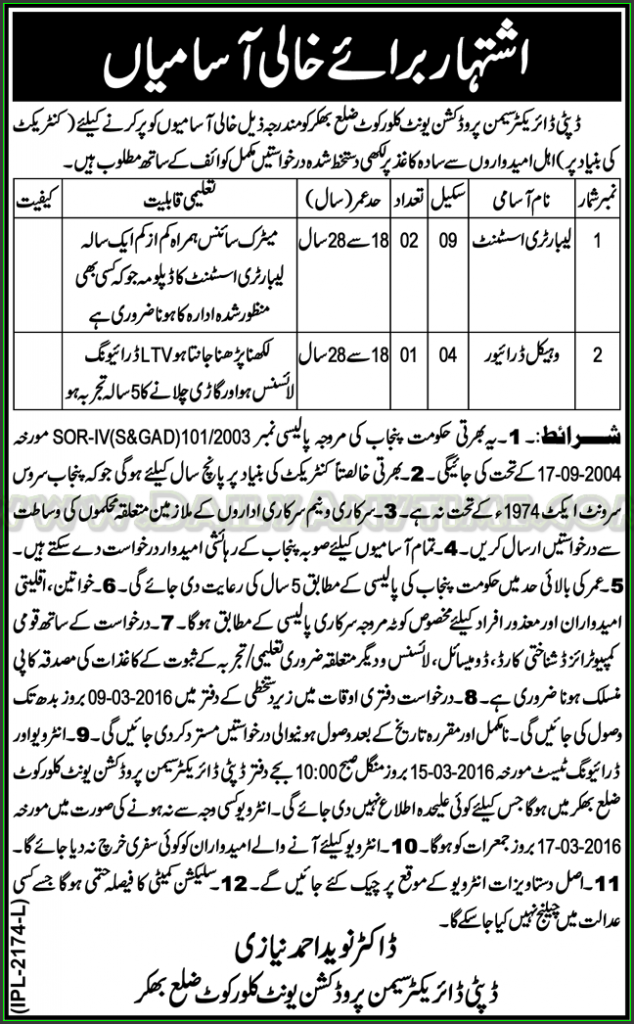 اشتہار برائے خالی آسامیاں
ڈپٹی ڈائریکٹر سیمن پروڈکشن یونٹ کلورکوٹ ضلع بھکر کو مندرجہ ذیل خالی آسامیوں کو پر کرنے کیلئے (کنٹریکٹ
کی بنیاد پر) اہل امیدواروں سے سادہ کاغذ پر لکھی دستخط شدہ درخواستیں مکمل کوائف کے ساتھ مطلوب ہیں۔
نمبر شمار نام آسامی سکیل تعداد حد عمر (سال) تعلیمی قابلیت کیفیت
1 لیبارٹری اسسٹنٹ 09 02 18 سے 28 سال میٹرک سائنس ہمراہ کم از کم ایک سالہ
لیبارٹری اسسٹنٹ کا ڈپلومہ جو کہ کسی بھی
منظور شدہ ادارہ کا ہونا ضروری ہے
2 وہیکل ڈرائیور 04 01 18 سے 28 سال لکھنا پڑھنا جانتا ہو LTV ڈرائیونگ
لائسنس ہو اور گاڑی چلانے کا 5 سالہ تجربہ ہو
شرائط:۔ 1۔ یہ بھرتی حکومت پنجاب کی مروجہ پالیسی نمبر SOR-IV(S&GAD)101/2003 مورخہ
17-09-2004 کے تحت کی جائیگی۔ 2۔ بھرتی خالصتاً کنٹریکٹ کی بنیاد پر پانچ سال کیلئے ہوگی جو کہ پنجاب سروس
سرونٹ ایکٹ 1974ء کے تحت نہ ہے۔ 3۔ سرکاری و نیم سرکاری اداروں کے ملازمین متعلقہ محکموں کی وساطت
سے درخواستیں ارسال کریں۔ 4۔ تمام آسامیوں کیلئے صوبہ پنجاب کے رہائشی امیدوار درخواست دے سکتے ہیں۔
5۔ عمر کی بالائی حد میں حکومت پنجاب کی پالیسی کے مطابق 5 سال کی رعایت دی جائے گی۔ 6۔ خواتین، اقلیتی
امیدواران اور معذور افراد کیلئے مخصوص کوٹہ مروجہ سرکاری پالیسی کے مطابق ہوگا۔ 7۔ درخواست کے ساتھ قومی
کمپیوٹرائزڈ شناختی کارڈ، ڈومیسائل، لائسنس و دیگر متعلقہ ضروری تعلیمی/تجربہ کے ثبوت کے کاغذات کی مصدقہ کاپی
منسلک ہونا ضروری ہے۔ 8۔ درخواست دفتری اوقات میں زیر دستخطی کے دفتر میں 09-03-2016 بروز بدھ تک
وصول کی جائیں گی۔ نامکمل اور مقررہ تاریخ کے بعد وصول ہونیوالی درخواستیں مسترد کر دی جائیں گی۔ 9۔ انٹرویو اور
ڈرائیونگ ٹیسٹ مورخہ 15-03-2016 بروز منگل صبح 10:00 بجے دفتر ڈپٹی ڈائریکٹر سیمن پروڈکشن یونٹ کلورکوٹ
ضلع بھکر میں ہوگا جس کیلئے کوئی علیحدہ اطلاع نہیں دی جائے گی۔ انٹرویو کسی وجہ سے نہ ہونے کی صورت میں مورخہ
17-03-2016 بروز جمعرات کو ہوگا۔ 10۔ انٹرویو کیلئے آنے والے امیدواران کو کوئی سفری خرچ نہ دیا جائے گا۔
11۔ اصل دستاویزات انٹرویو کے موقع پر چیک کئے جائیں گے۔ 12۔ سلیکشن کمیٹی کا فیصلہ حتمی ہوگا جسے کسی
عدالت میں چیلنج نہیں کیا جا سکے گا۔
ڈاکٹر نوید احمد نیازی
ڈپٹی ڈائریکٹر سیمن پروڈکشن یونٹ کلورکوٹ ضلع بھکر
(IPL-2174-L)